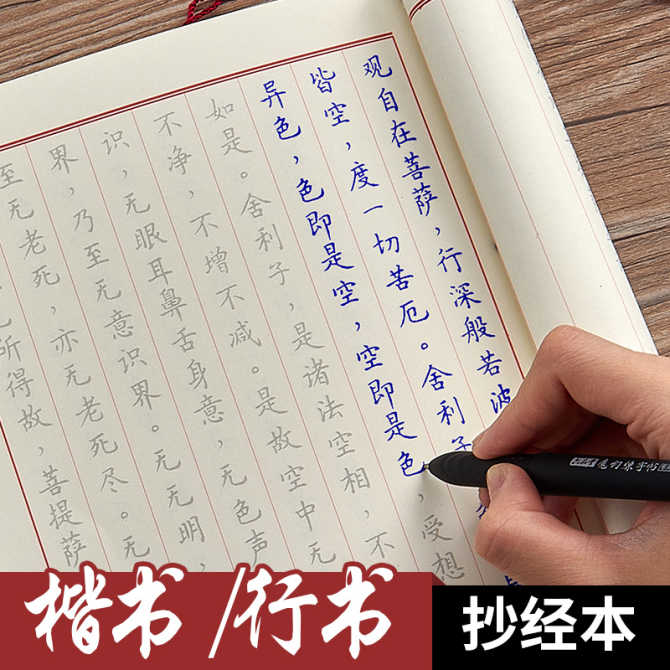 观自在菩萨，行深般若波
皆空，度一切苦厄。舍利子
异色，色即是空，空即是色，受想
如是。舍利子，是诸法空相，不
不净，不增不减。是故空中无
识，无眼耳鼻舌身意，无色声
界，乃至无意识界。无无明，
至无老死，亦无老死尽。无
所得故，菩提萨
楷书/行书
抄经本